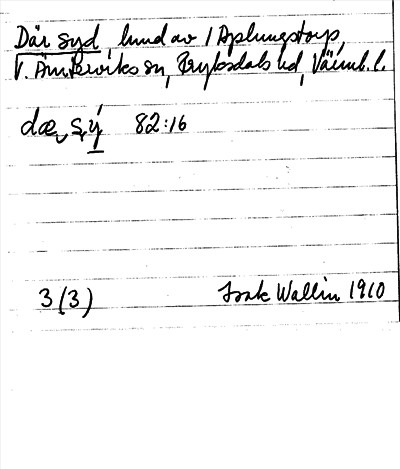 Där syd, hmd av 1 Aplungstorp,
V. Ämterviks sn, Fryksdals hd, Värml. l.
dæ, s,ý 82:16
3(3) Isak Wallin 1910